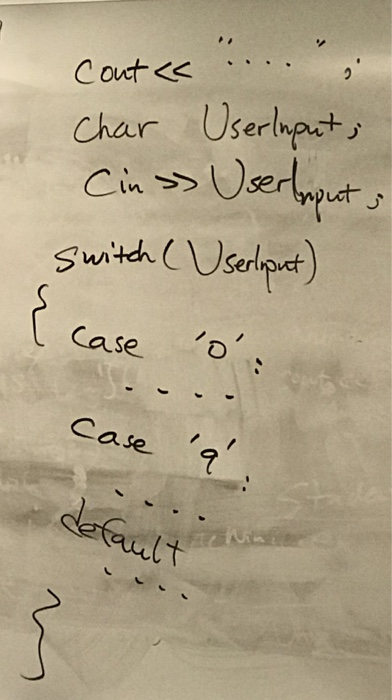 Cout << "....";
Char UserInput;
Cin >> UserInput;
switch(UserInput)
{
Case '0':
....
Case '9':
....
default
....
}